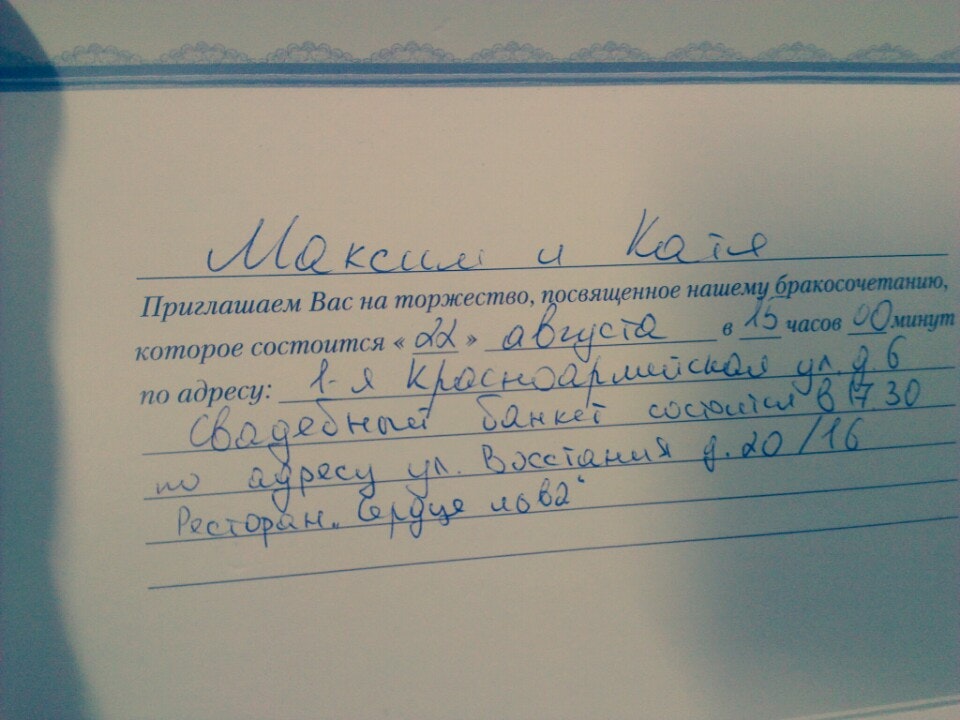 Максим и Катя
Приглашаем Вас на торжество, посвященное нашему бракосочетанию,
которое состоится « 22 » августа в 15 часов 00 минут
по адресу: 1-я Красноармейская ул. д. 6
Свадебный банкет состоится в 17.30
по адресу ул. Восстания д. 20/16
Ресторан „Сердце льва“